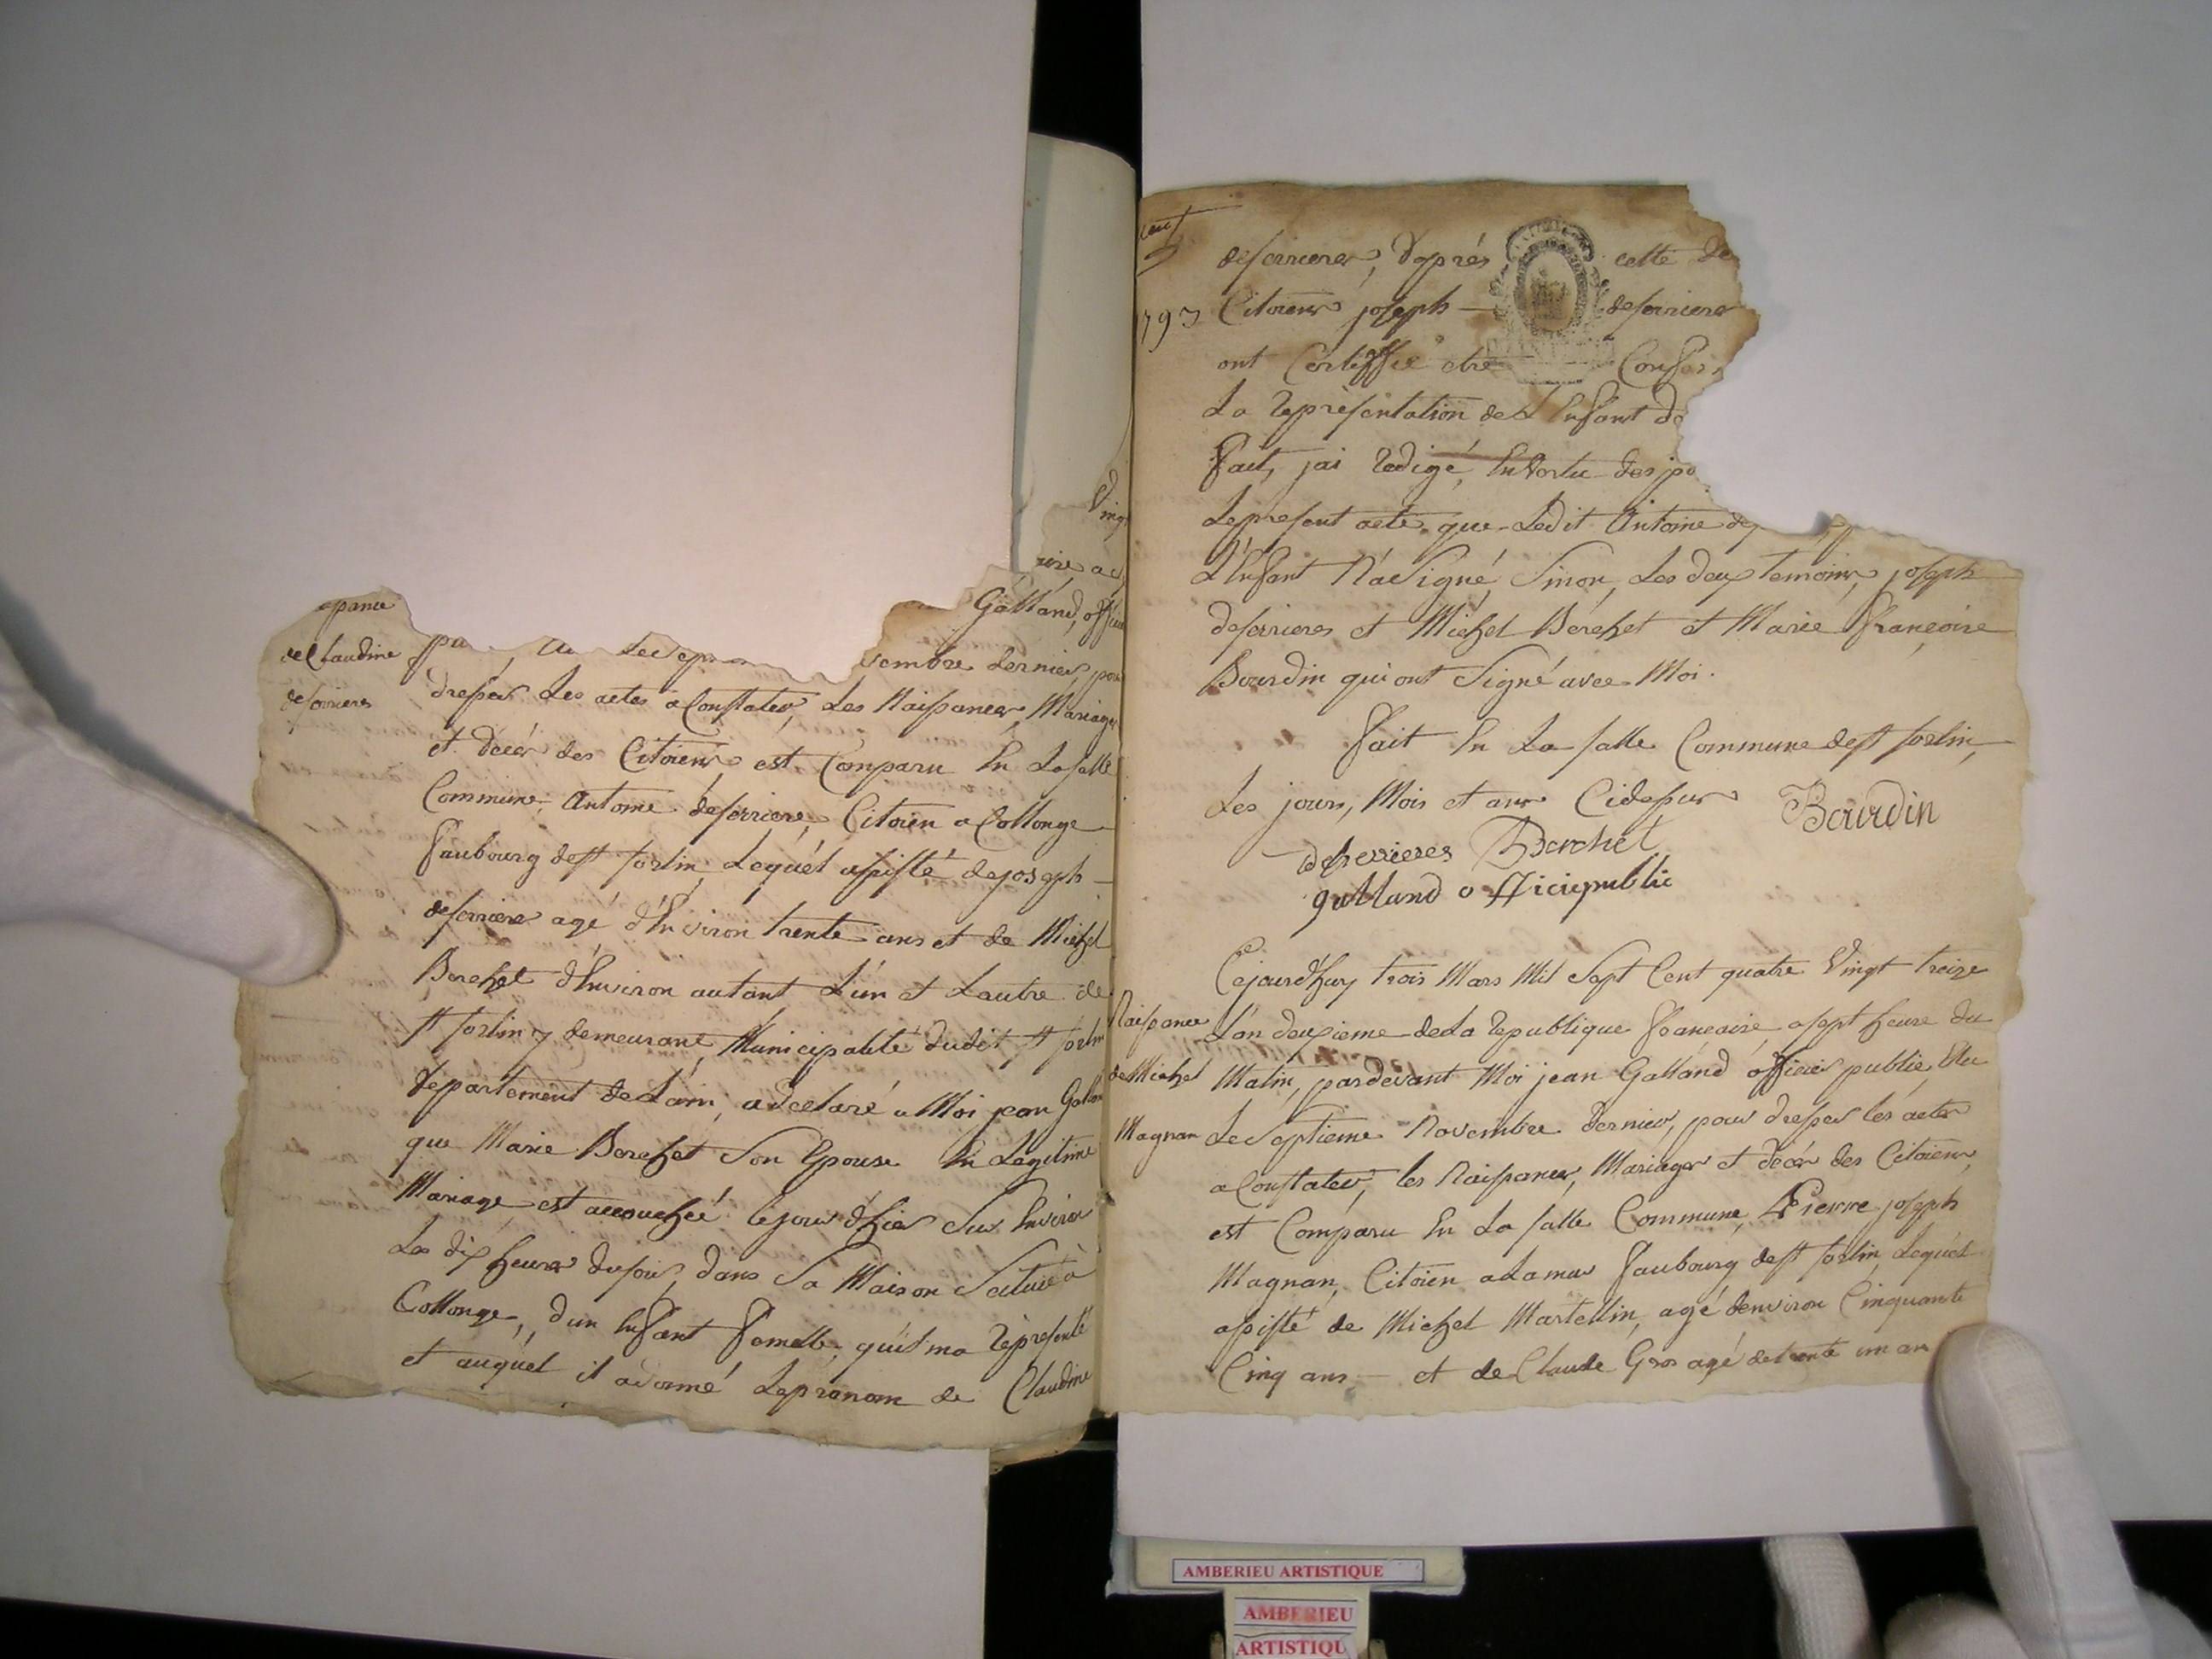 Vingt
aire a
Galland, officier
pance
de Claudine
deserrieres
vembre dernier, pour
dresser les actes a Constater, Les Naissances, Mariages
et decés des Citoiens est Comparu En La salle
Commune Antoine deserrieres Citoien a Collonge
faubourg de st sorlin, Lequél assisté de joseph
deserrieres agé d'Environ trente ans et de Michel
Berchet d'Environ autant L'un et Lautre de
st sorlin y demeurant, Municipalité dudit st sorlin
departement de Lain, a declaré a Moi jean Galland
que Marie Berchet Son Epouse En Legitime
Mariage est accouchéé le jour d'hier Sur Environ
Les dix heures du soir, dans Sa Maison Scituéé à
Collonge, d'un Enfant femelle, quil ma représenté
et auquel il a donné Le prenom de Claudine
cent
1793
deserrieres, d'aprés cette de
Citoiens joseph deserrieres
ont Certiffié etre Confor
La représentation de L'Enfant de
fait, jai redigé, En Vertu des po
Le present acte que Ledit Antoine de
L'Enfant N'a Signé, Sinon, Les deux temoins, joseph
deserrieres et Michel Berchet et Marie françoise
Bourdin qui ont Signé avec Moi.
fait En La salle Commune de st sorlin,
Les jours, Mois et ans Cidessus Bourdin
deserrieres Berchet
galland officie public
Cejourd'huy trois Mars Mil Sept Cent quatre Vingt treize
Naissance
de Michel
Magnan
L'an deuxieme de La republique francaise a sept heure du
Matin, pardevant Moi jean Galland officier public, Elu
Le Septieme Novembre dernier, pour dresser les actes
a Constater, les Naissances, Mariages et décés des Citoiens,
est Comparu En La salle Commune, Pierre joseph
Magnan, Citoien a Lamar faubourg de st sorlin, Lequél
assisté de Michel Martellin, agé denviron Cinquante
Cinq ans — et de Claude Gros agé de trente un an
AMBERIEU ARTISTIQUE
AMBERIEU
ARTISTIQU